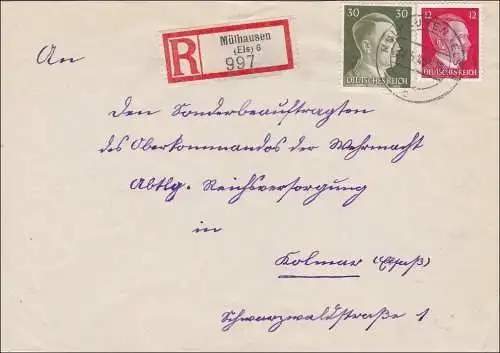 R
Mülhausen
(Els) 6
997
30 30
DEUTSCHES REICH
12 12
DEUTSCHES REICH
An
den Sonderbeauftragten
des Oberkommandos der Wehrmacht
Abtlg. Reichsversorgung
in
Kolmar (Elsaß)
Schwarzwaldstraße 1